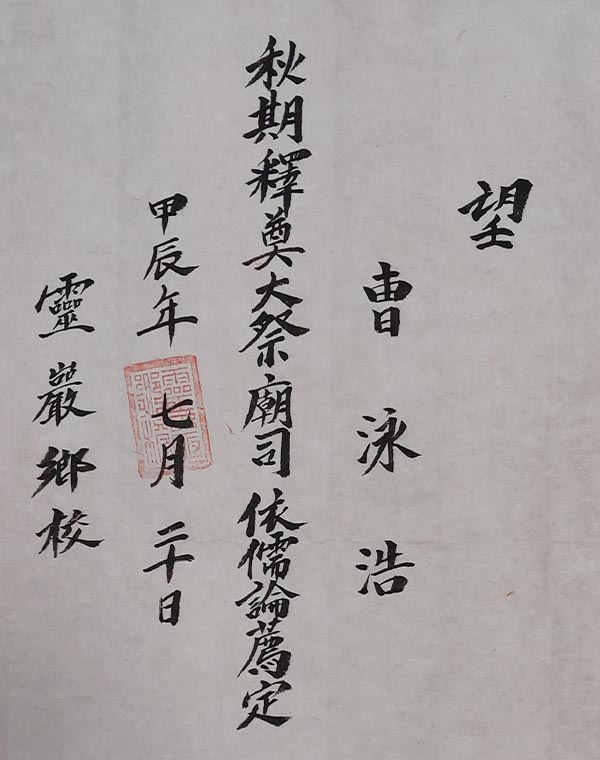 望
曺泳浩
秋期釋奠大祭廟司 依儒論薦定
甲辰年 七月 二十日
靈巖鄕校